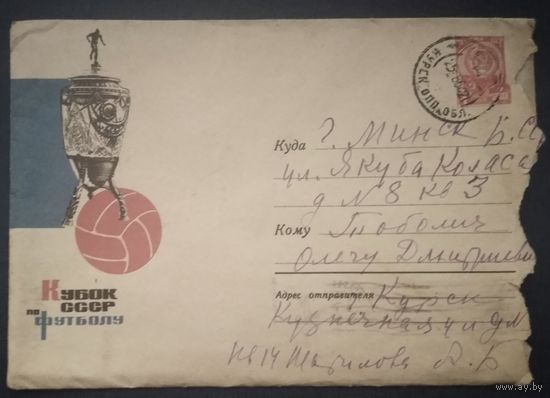 КУРСК ОПП ОБЛ.
Куда г. Минск Б.С
ул. Якуба Коласа
д № 8 кв 3
Кому Тоболич
Олегу Дмитриеви
Адрес отправителя г Курск
Кузнечная ул д №
№ 14
КУБОК
СССР
по
ФУТБОЛУ
www.ay.by